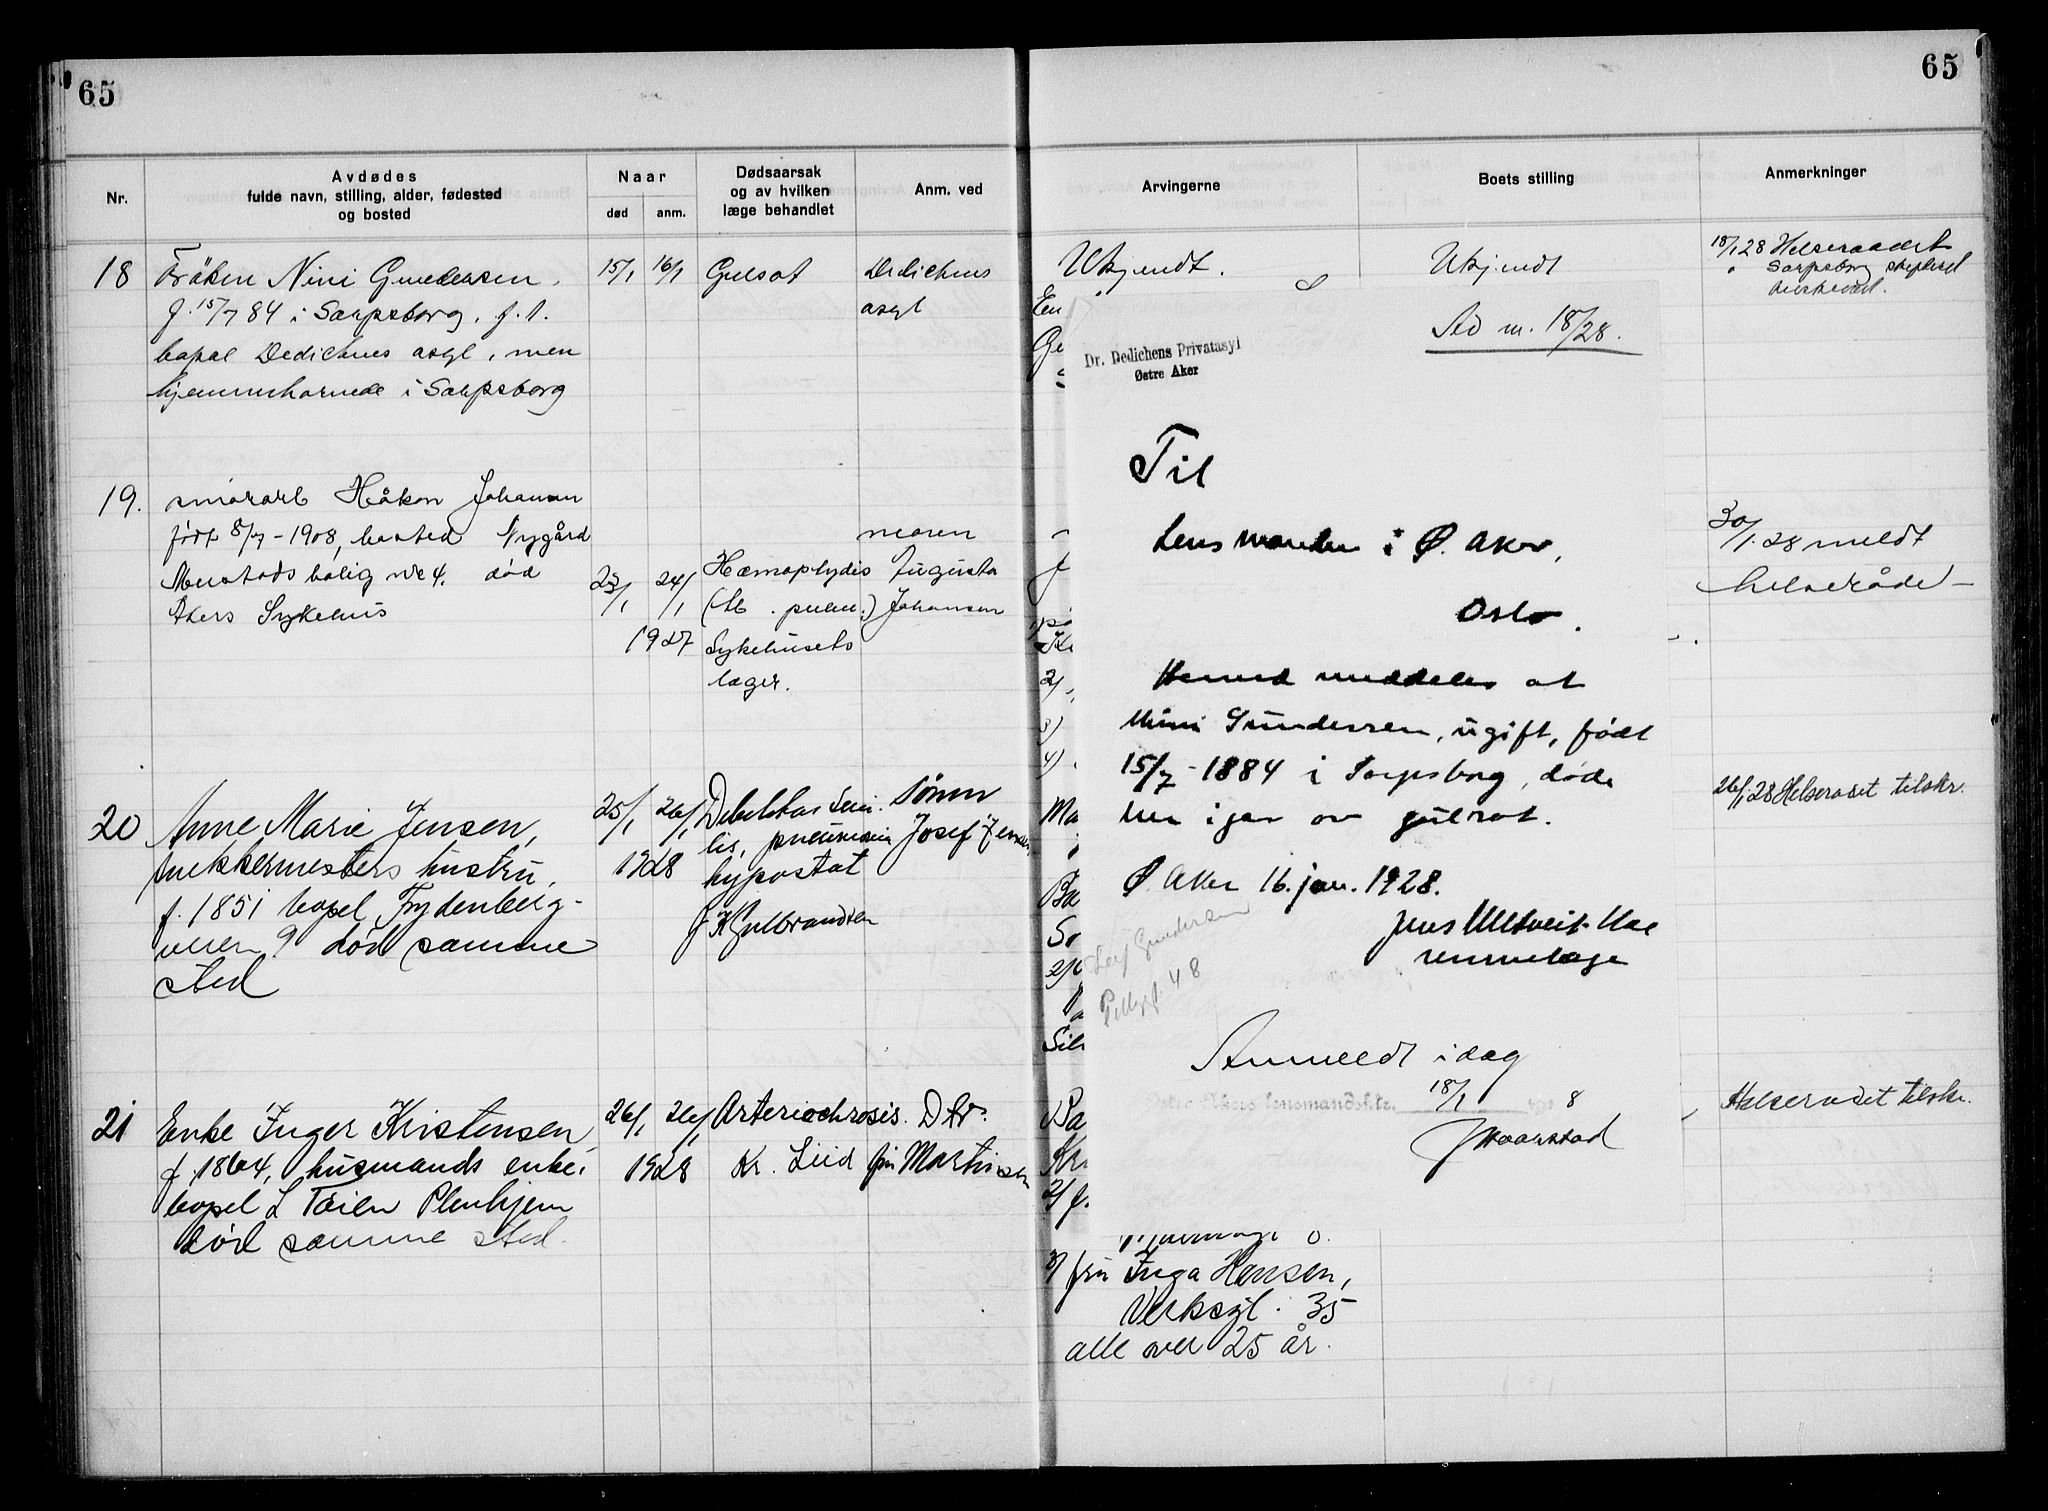 65
65
Nr.
Avdødes
fulde navn, stilling, alder, fødested
og bosted
Naar
død
anm.
Dødsaarsak
og av hvilken
læge behandlet
Anm. ved
Arvingerne
Boets stilling
Anmerkninger
18
Fröken Nini Gundersen
f. 15/7 84 i Sarpsborg, f. t.
bopæl Dedichens asyl, men
hjemmehørende i Sarpsborg
15/1
16/1
Gulsot
Dedichens
asyl
Ukjendt.
Ukjendt
18/1 28 Helseraadet
Sarpsborg skifteret
19.
Håkon Johansen
født 8/7 - 1908, bosted Nygård
bolig nr 4. død
Akers Sykehus
23/1
24/1
1927
Hæmoptydis
(tb. pulm.)
Sykehusets
læger.
moren
Augusta
Johansen
30/1. 28 meldt
helseråde
20
Anne Marie Jensen,
hustru,
f. 1851 bopel Frydenberg-
veien 9 død samme
sted
25/1
26/1
1928
Debilitas seni-
lis, pneumonia
hypostat
K Gulbrandsen
Sønen
Josef Jensen
26/1 28 Helseradet tilskr.
21
Enke Inger Kristensen
f. 1864, husmands enke,
bopel L Tøien Pleiehjem
død samme sted.
26/1
26/1
1928
Arteriochrosis.
Kr. Lied
Dtr.
fru Martinsen
Helseradet tilskr.
Ad nr. 18/28.
Dr. Dedichens Privatasyl
Østre Aker
Til
Lensmanden i Ø. Aker,
Oslo.
Herved meddeles at
Nini Gundersen, ugift, født
15/7 - 1884 i Sarpsborg, døde
her igår av gulsot.
Ø. Aker 16. jan. 1928.
Jens
reservelæge
Leif Gundersen
48
Anmeldt idag
Østre Akers lensmandsktr. 18/1 192 8
3/ fru Inga Hansen,
35
alle over 25 år.